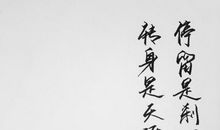 停留是刹
转身是天